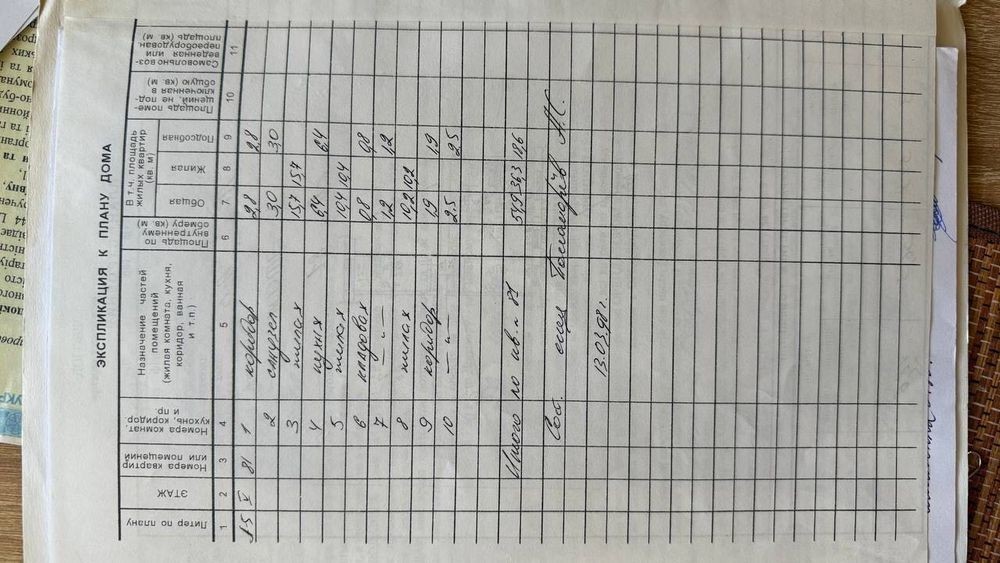 ЭКСПЛИКАЦИЯ К ПЛАНУ ДОМА
Литер по плану
ЭТАЖ
Номера квартир или помещений
Номера комнат, кухонь, коридор. и пр
Назначение частей помещений (жилая комната, кухня, коридор, ванная и т.п.)
Площадь по внутреннему обмеру (кв. м)
В т.ч. площадь жилых квартир (кв м)
Общая
Жилая
Подсобная
Площадь помещений, не подключенная в общую (кв. м)
Самовольно возведенная или переоборудован. площадь (кв м)
1 2 3 4 5 6 7 8 9 10 11
А-5 V 81 1 коридор 2,8 2,8
2 санузел 3,0 3,0
3 жилая 15,7 15,7
4 кухня 6,4 6,4
5 жилая 10,4 10,4
6 кладовая 0,8 0,8
7 —"— 1,2 1,2
8 жилая 10,2 10,2
9 коридор 1,9 1,9
10 —"— 2,5 2,5
Итого по кв. № 81 54,9 36,3 18,6
Сост.
13.03.98г.